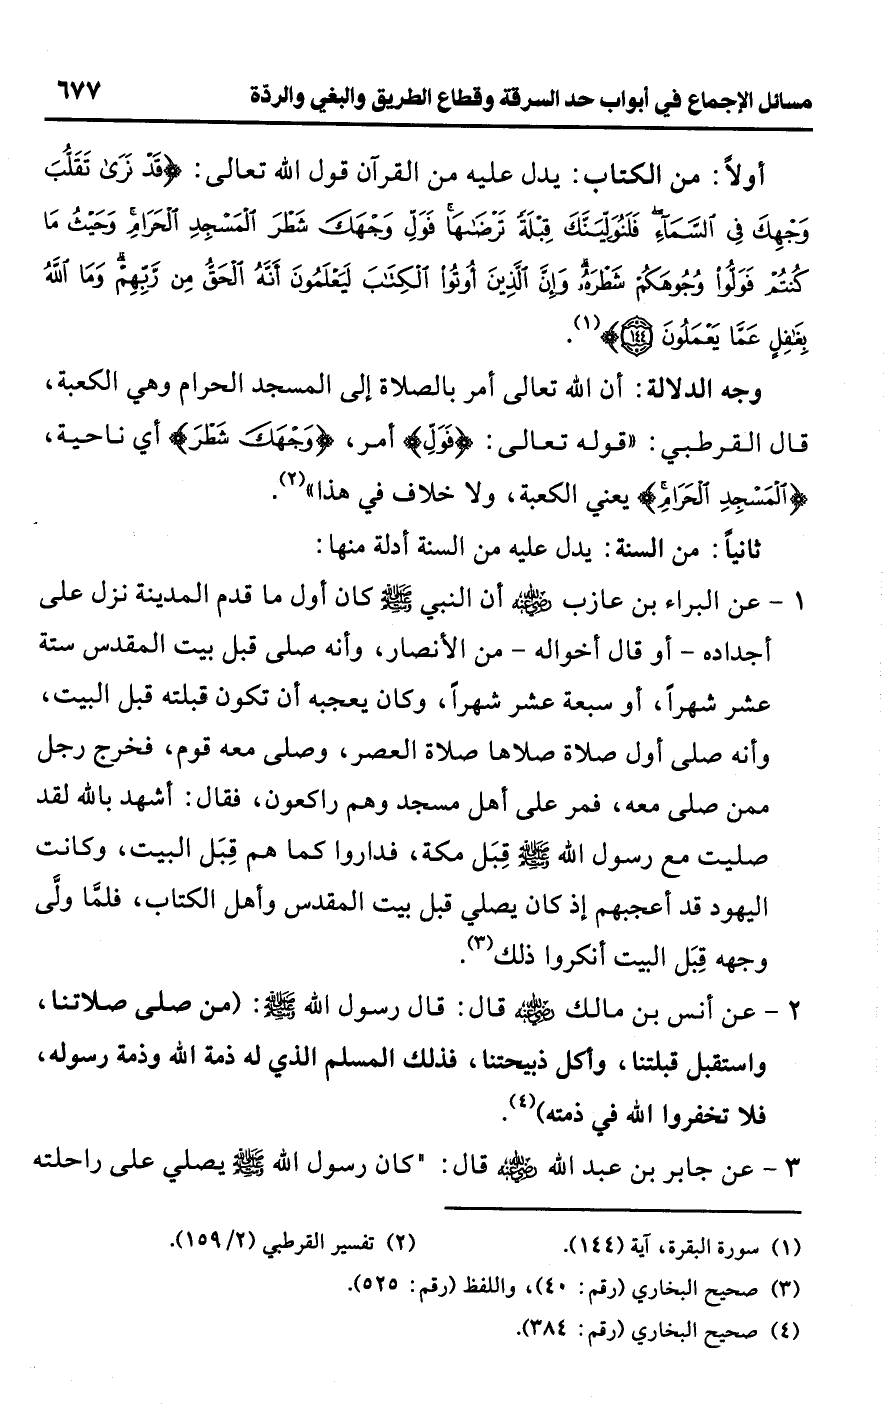 مسائل الإجماع في أبواب حد السرقة وقطاع الطريق والبغي والردّة ٦٧٧
أولاً: من الكتاب: يدل عليه من القرآن قول الله تعالى: ﴿قَدْ نَرَىٰ تَقَلُّبَ
وَجْهِكَ فِى السَّمَآءِ ۖ فَلَنُوَلِّيَنَّكَ قِبْلَةً تَرْضَىٰهَا ۚ فَوَلِّ وَجْهَكَ شَطْرَ الْمَسْجِدِ الْحَرَامِ ۚ وَحَيْثُ مَا
كُنتُمْ فَوَلُّوا۟ وُجُوهَكُمْ شَطْرَهُۥ ۗ وَإِنَّ الَّذِينَ أُوتُوا۟ الْكِتَٰبَ لَيَعْلَمُونَ أَنَّهُ الْحَقُّ مِن رَّبِّهِمْ ۗ وَمَا اللَّهُ
بِغَٰفِلٍ عَمَّا يَعْمَلُونَ ١٤٤﴾(١).
وجه الدلالة: أن الله تعالى أمر بالصلاة إلى المسجد الحرام وهي الكعبة،
قال القرطبي: «قوله تعالى: ﴿فَوَلِّ﴾ أمر، ﴿وَجْهَكَ شَطْرَ﴾ أي ناحية،
﴿الْمَسْجِدِ الْحَرَامِ ۚ﴾ يعني الكعبة، ولا خلاف في هذا»(٢).
ثانياً: من السنة: يدل عليه من السنة أدلة منها:
١ - عن البراء بن عازب رضي الله عنه أن النبي ﷺ كان أول ما قدم المدينة نزل على
أجداده - أو قال أخواله - من الأنصار، وأنه صلى قبل بيت المقدس ستة
عشر شهراً، أو سبعة عشر شهراً، وكان يعجبه أن تكون قبلته قبل البيت،
وأنه صلى أول صلاة صلاها صلاة العصر، وصلى معه قوم، فخرج رجل
ممن صلى معه، فمر على أهل مسجد وهم راكعون، فقال: أشهد بالله لقد
صليت مع رسول الله ﷺ قِبَل مكة، فداروا كما هم قِبَل البيت، وكانت
اليهود قد أعجبهم إذ كان يصلي قبل بيت المقدس وأهل الكتاب، فلمَّا ولَّى
وجهه قِبَل البيت أنكروا ذلك(٣).
٢ - عن أنس بن مالك رضي الله عنه قال: قال رسول الله ﷺ: (من صلى صلاتنا،
واستقبل قبلتنا، وأكل ذبيحتنا، فذلك المسلم الذي له ذمة الله وذمة رسوله،
فلا تخفروا الله في ذمته)(٤).
٣ - عن جابر بن عبد الله رضي الله عنه قال: "كان رسول الله ﷺ يصلي على راحلته
(١) سورة البقرة، آية (١٤٤). (٢) تفسير القرطبي (١٥٩/٢).
(٣) صحيح البخاري (رقم: ٤٠)، واللفظ (رقم: ٥٢٥).
(٤) صحيح البخاري (رقم: ٣٨٤).